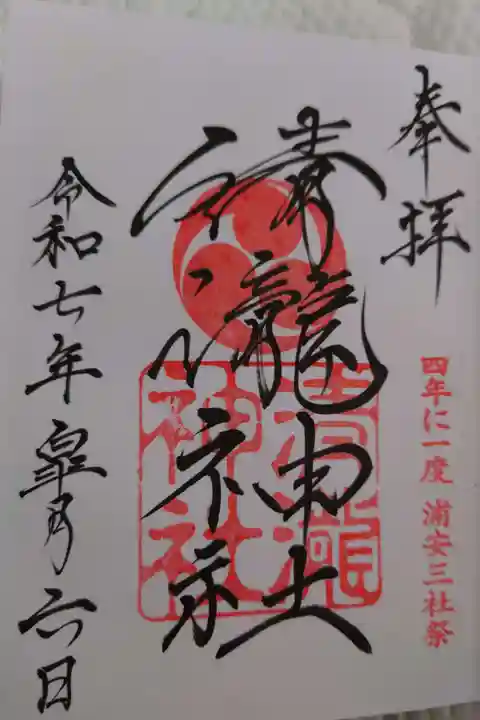 奉拝
四年に一度 浦安三社祭
清瀧神社
清瀧
神社
令和七年皐月六日